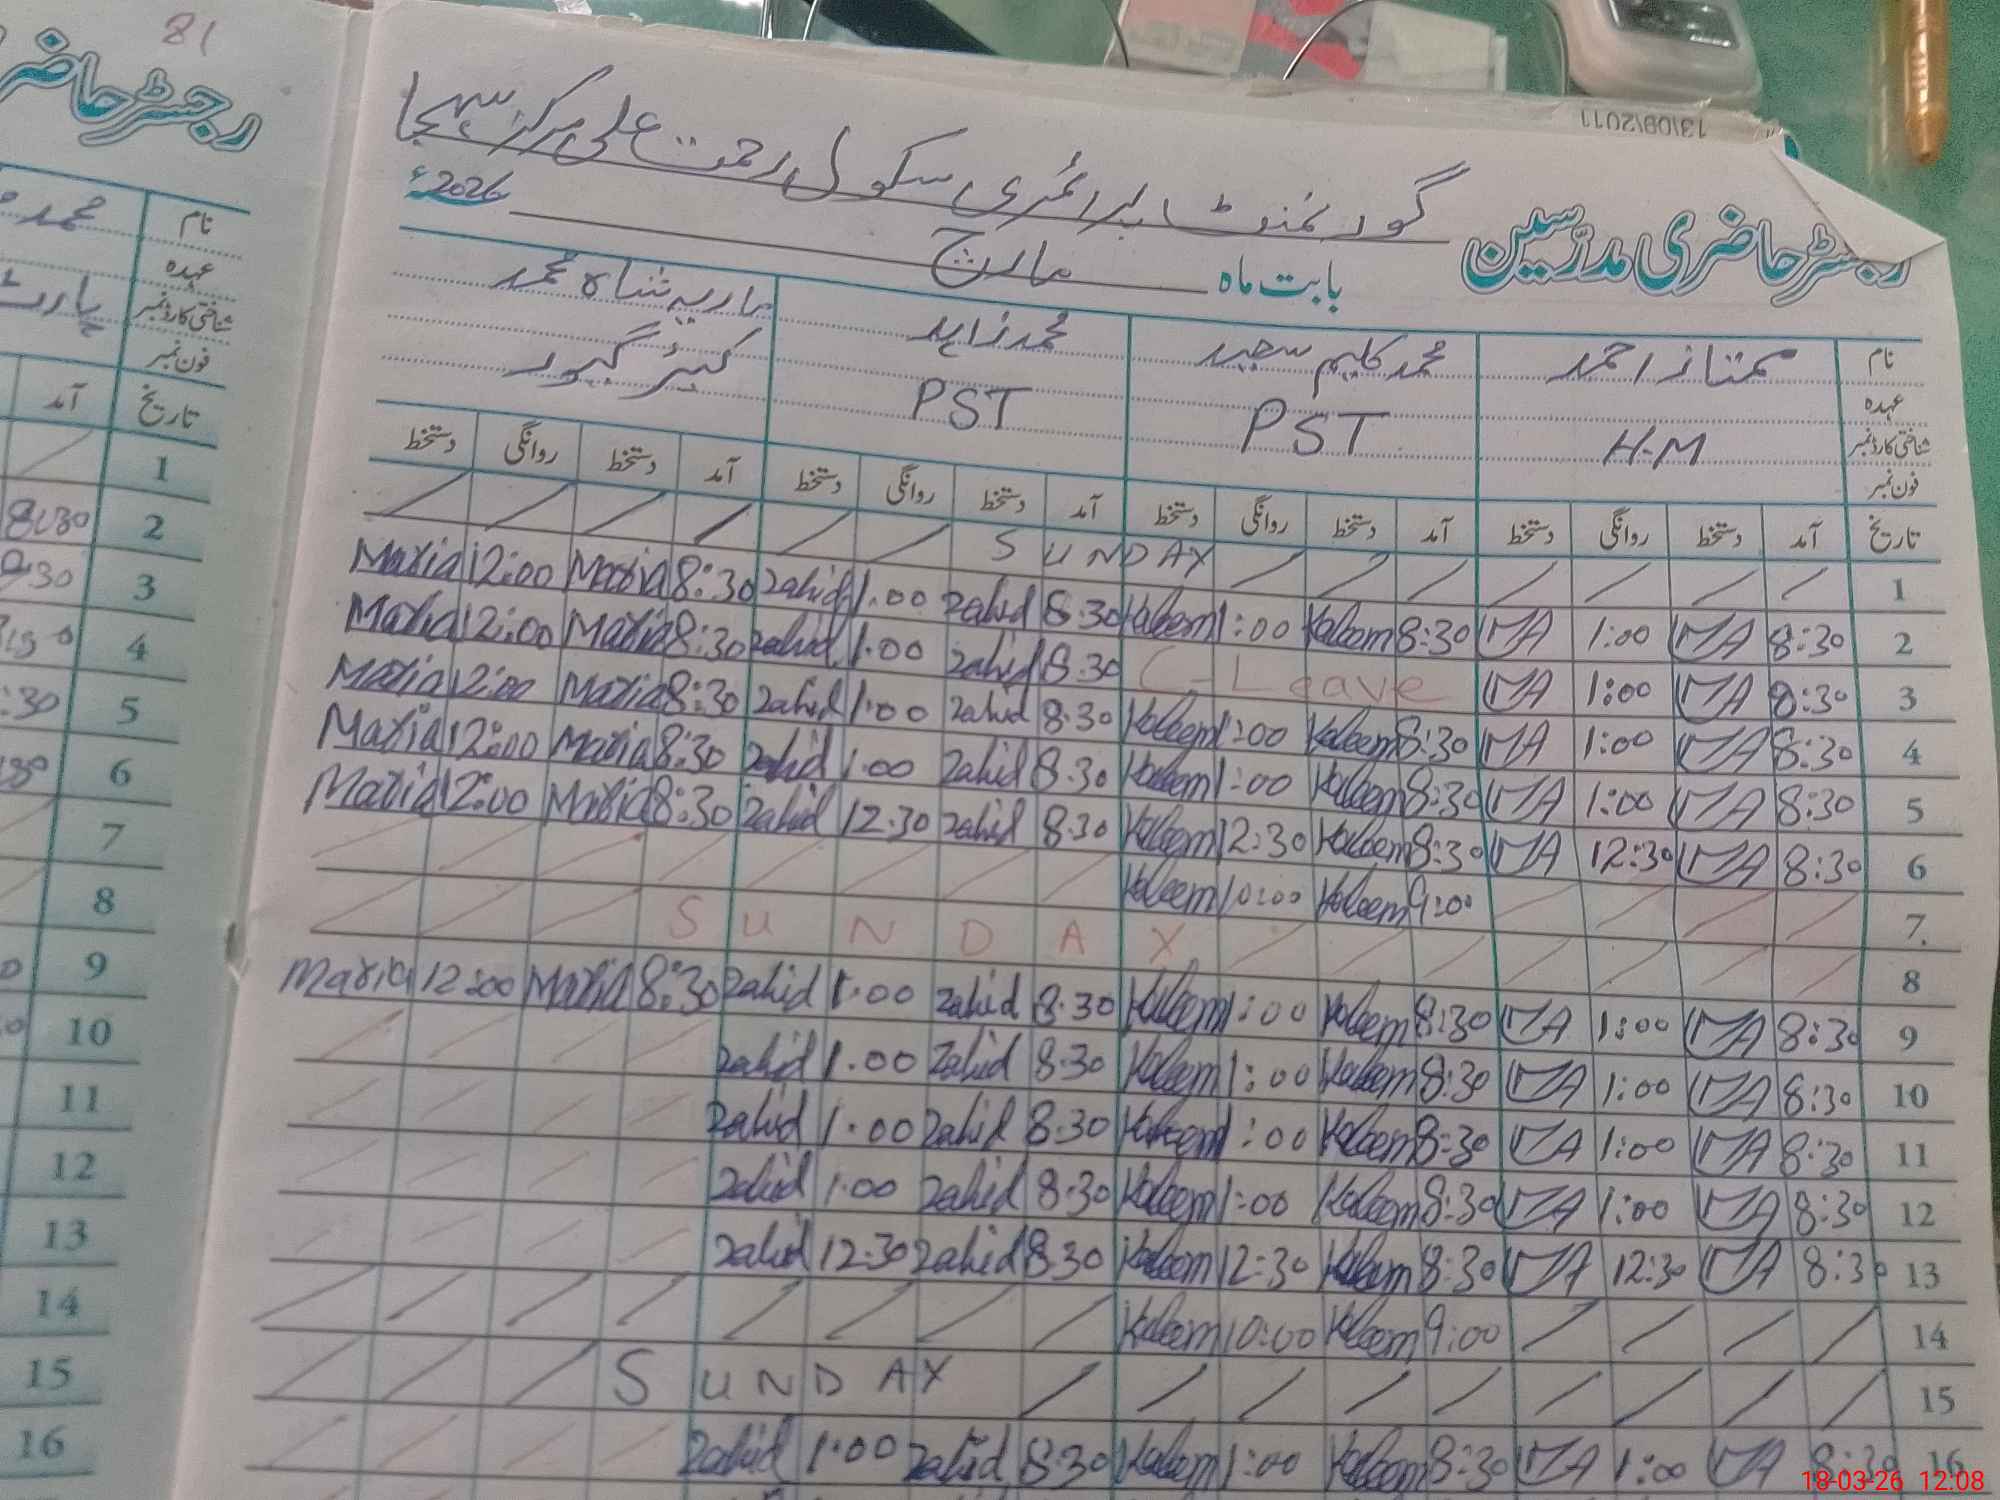 81
رجسٹر حاضر
13/09/2011
گورنمنٹ پرائمری سکول رحمت علی مرکز سہجا
رجسٹر حاضری مدرّسین
بابت ماہ مارچ 2026ء
نام ممتاز احمد محمد کلیم سعید محمد زاہد ماریہ شاہ محمد
عہدہ H.M PST PST کیئر گیور
شناختی کارڈ نمبر
فون نمبر
تاریخ آمد دستخط روانگی دستخط آمد دستخط روانگی دستخط آمد دستخط روانگی دستخط آمد دستخط روانگی دستخط
1 SUNDAY
2 8:30 MA 1:00 MA 8:30 Kaleem 1:00 Kaleem 8:30 Zahid 1:00 Zahid 8:30 Maria 12:00 Maria
3 8:30 MA 1:00 MA C-Leave 8:30 Zahid 1:00 Zahid 8:30 Maria 12:00 Maria
4 8:30 MA 1:00 MA 8:30 Kaleem 1:00 Kaleem 8:30 Zahid 1:00 Zahid 8:30 Maria 12:00 Maria
5 8:30 MA 1:00 MA 8:30 Kaleem 1:00 Kaleem 8:30 Zahid 1:00 Zahid 8:30 Maria 12:00 Maria
6 8:30 MA 12:30 MA 8:30 Kaleem 12:30 Kaleem 8:30 Zahid 12:30 Zahid 8:30 Maria 12:00 Maria
7. 9:00 Kaleem 10:00 Kaleem
8 SUNDAY
9 8:30 MA 1:00 MA 8:30 Kaleem 1:00 Kaleem 8:30 Zahid 1:00 Zahid 8:30 Maria 12:00 Maria
10 8:30 MA 1:00 MA 8:30 Kaleem 1:00 Kaleem 8:30 Zahid 1:00 Zahid
11 8:30 MA 1:00 MA 8:30 Kaleem 1:00 Kaleem 8:30 Zahid 1:00 Zahid
12 8:30 MA 1:00 MA 8:30 Kaleem 1:00 Kaleem 8:30 Zahid 1:00 Zahid
13 8:30 MA 12:30 MA 8:30 Kaleem 12:30 Kaleem 8:30 Zahid 12:30 Zahid
14 9:00 Kaleem 10:00 Kaleem
15 SUNDAY
16 8:30 MA 1:00 MA 8:30 Kaleem 1:00 Kaleem 8:30 Zahid 1:00 Zahid
نام محمد
عہدہ
شناختی کارڈ نمبر
فون نمبر
تاریخ آمد
1
2 8:30
3
4
5
6
7
8
9
10
11
12
13
14
15
16
18-03-26 12:08